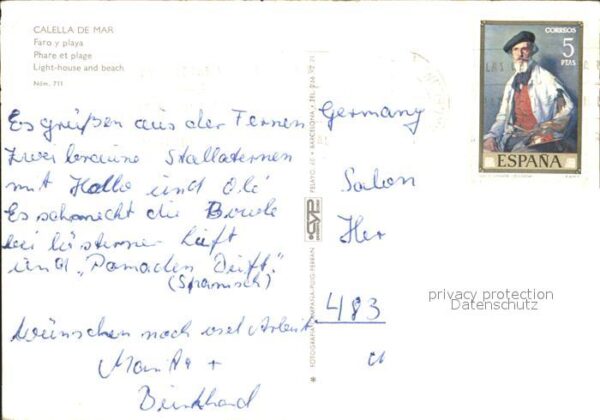 CALELLA DE MAR
Faro y playa
Phare et plage
Light-house and beach
Núm. 711
Es grüßen aus der Fernen
zwei braune Stallaternen
mit Hallo und Olé
Es schmeckt die
bei lüsterner Luft
und "Pomaden Duft."
(Spanisch)
Wünschen noch viel Arbeit
Marita +
Burkhard
Germany
Salon
Her
483
CORREOS
5
PTAS
ESPAÑA
privacy protection
Datenschutz